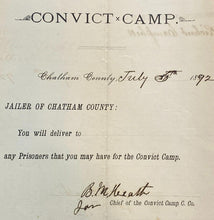 CONVICT CAMP.
Chatham County, July 5th 1892
JAILER OF CHATHAM COUNTY:
You will deliver to
any Prisoners that you may have for the Convict Camp.
Chief of the Convict Camp C. Co.